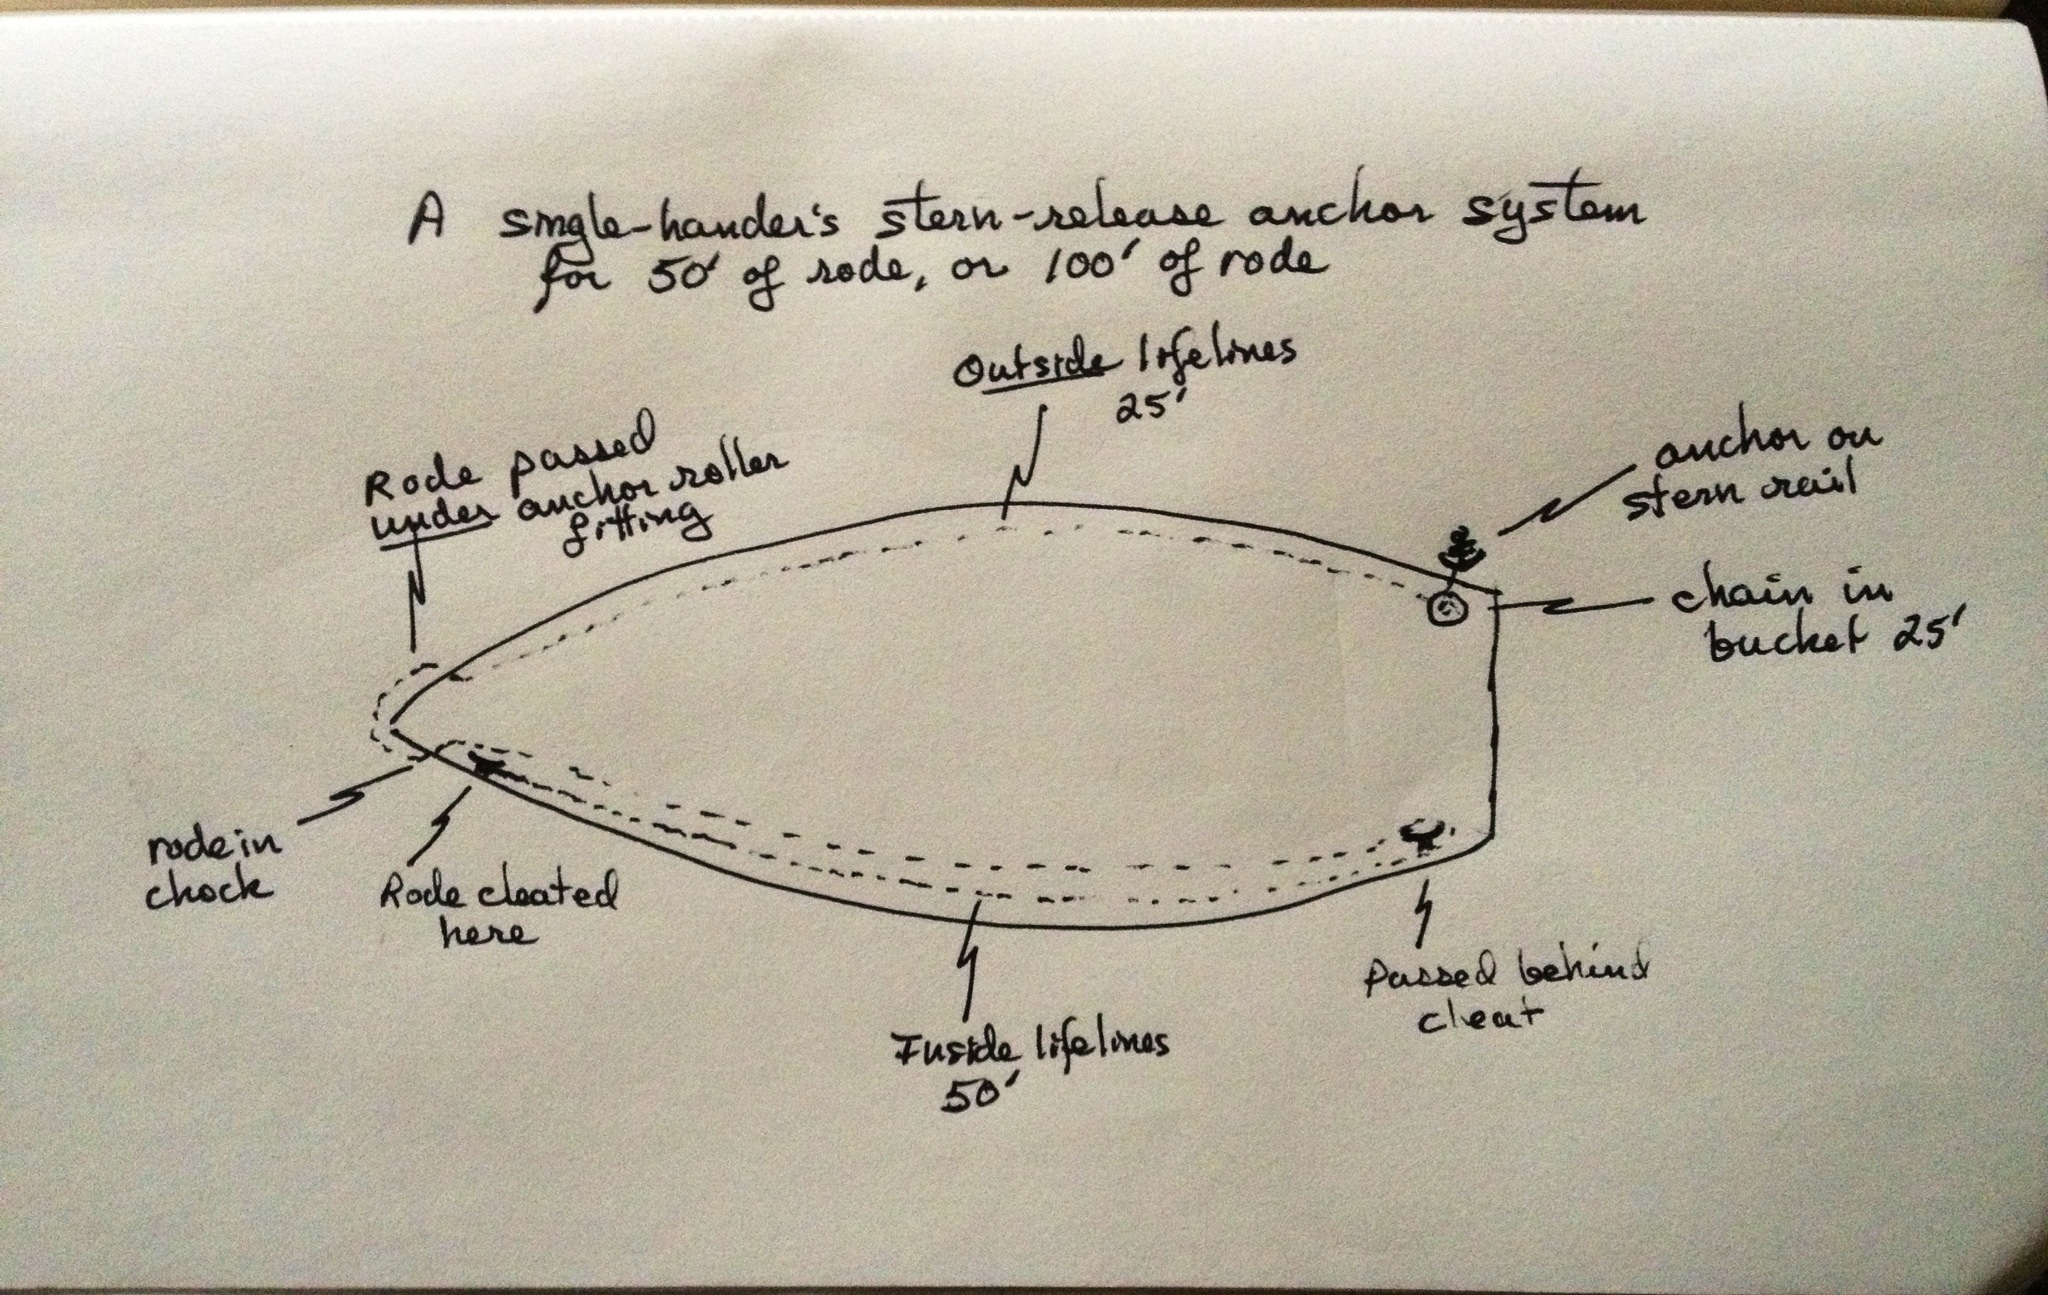 A single-hander's stern-release anchor system
for 50' of rode, or 100' of rode
Outside lifelines
25'
Rode passed
under anchor roller
fitting
anchor on
stern rail
chain in
bucket 25'
rode in
chock
Rode cleated
here
Inside lifelines
50'
Passed behind
cleat